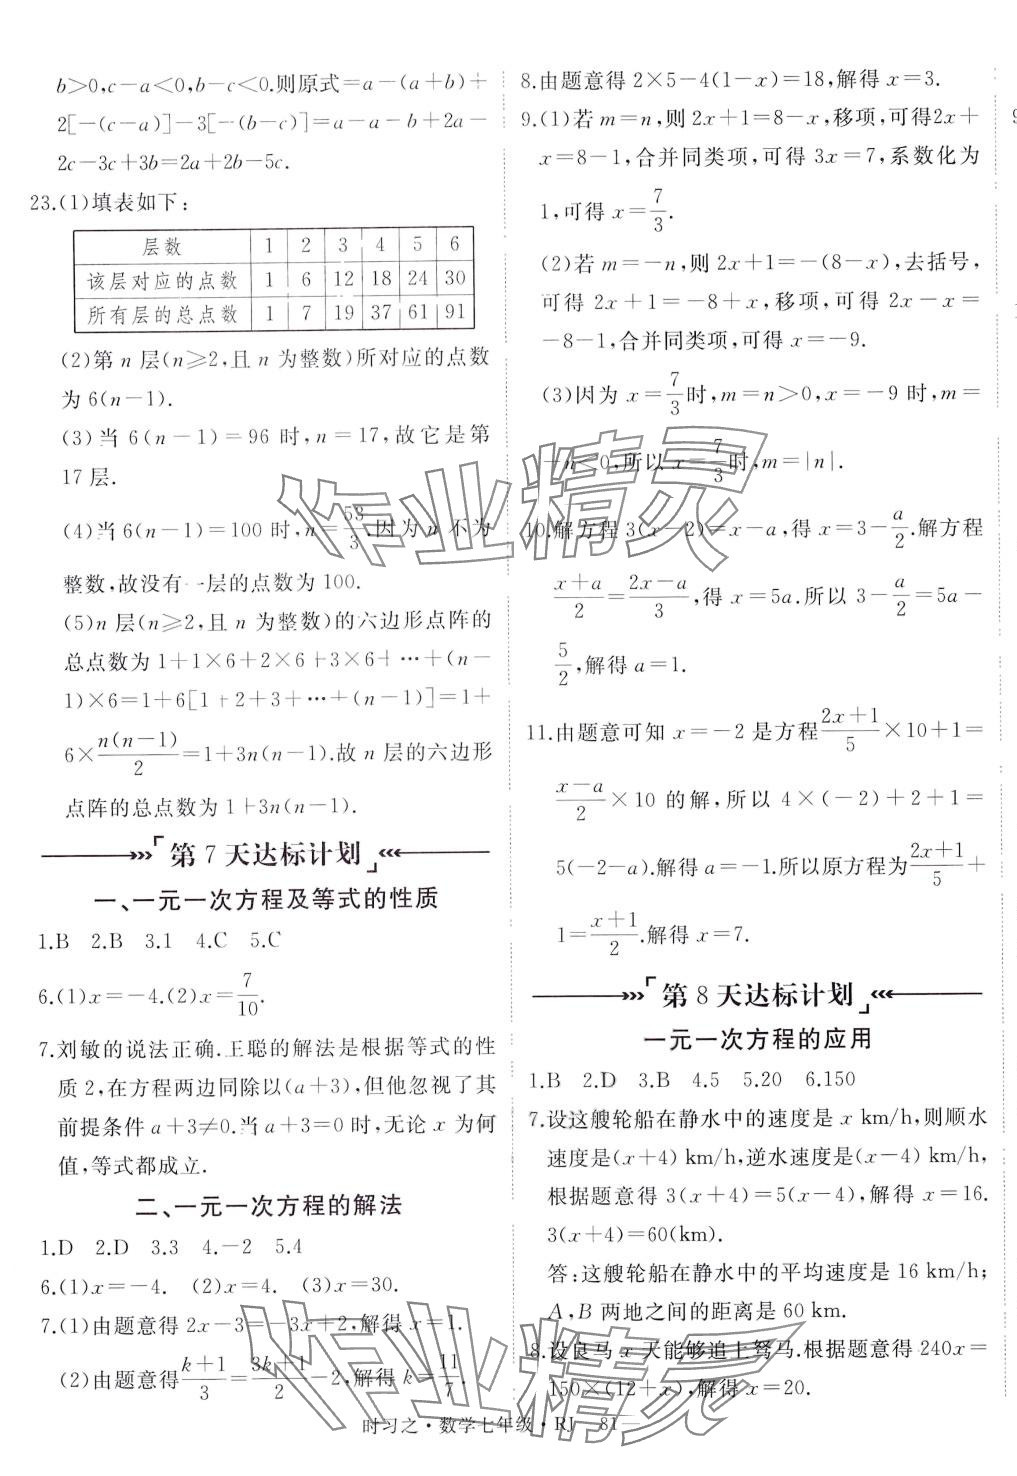 b>0,c-a<0,b-c<0.则原式=a-(a+b)+
2[-(c-a)]-3[-(b-c)]=a-a-b+2a-
2c-3c+3b=2a+2b-5c.
23.(1)填表如下:
层数 1 2 3 4 5 6
该层对应的点数 1 6 12 18 24 30
所有层的总点数 1 7 19 37 61 91
(2)第 n 层(n≥2,且 n 为整数)所对应的点数
为 6(n-1).
(3)当 6(n-1)=96 时,n=17,故它是第
17 层.
(4)当 6(n-1)=100 时,n=53/3.因为 n 不为
整数,故没有一层的点数为 100.
(5)n 层(n≥2,且 n 为整数)的六边形点阵的
总点数为 1+1×6+2×6+3×6+…+(n-
1)×6=1+6[1+2+3+…+(n-1)]=1+
6×n(n-1)/2=1+3n(n-1).故 n 层的六边形
点阵的总点数为 1+3n(n-1).
第 7 天达标计划
一、一元一次方程及等式的性质
1.B 2.B 3.1 4.C 5.C
6.(1)x=-4.(2)x=7/10.
7.刘敏的说法正确.王聪的解法是根据等式的性
质 2,在方程两边同除以(a+3),但他忽视了其
前提条件 a+3≠0.当 a+3=0 时,无论 x 为何
值,等式都成立.
二、一元一次方程的解法
1.D 2.D 3.3 4.-2 5.4
6.(1)x=-4. (2)x=4. (3)x=30.
7.(1)由题意得 2x-3=-3x+2,解得 x=1.
(2)由题意得 k+1/3=3k+1/2-2,解得 k=11/7.
8.由题意得 2×5-4(1-x)=18,解得 x=3.
9.(1)若 m=n,则 2x+1=8-x,移项,可得2x+
x=8-1,合并同类项,可得 3x=7,系数化为
1,可得 x=7/3.
(2)若 m=-n,则 2x+1=-(8-x),去括号,
可得 2x+1=-8+x,移项,可得 2x-x=
-8-1,合并同类项,可得 x=-9.
(3)因为 x=7/3时,m=n>0,x=-9 时,m=
-n<0,所以 x=7/3时,m=|n|.
10.解方程 3(x-2)=x-a,得 x=3-a/2.解方程
x+a/2=2x-a/3,得 x=5a.所以 3-a/2=5a-
5/2,解得 a=1.
11.由题意可知 x=-2 是方程2x+1/5×10+1=
x-a/2×10 的解,所以 4×(-2)+2+1=
5(-2-a).解得 a=-1.所以原方程为2x+1/5+
1=x+1/2.解得 x=7.
第 8 天达标计划
一元一次方程的应用
1.B 2.D 3.B 4.5 5.20 6.150
7.设这艘轮船在静水中的速度是 x km/h,则顺水
速度是(x+4) km/h,逆水速度是(x-4) km/h,
根据题意得 3(x+4)=5(x-4),解得 x=16.
3(x+4)=60(km).
答:这艘轮船在静水中的平均速度是 16 km/h;
A,B 两地之间的距离是 60 km.
8.设良马 x 天能够追上驽马.根据题意得 240x=
150×(12+x),解得 x=20.
时习之·数学七年级·RJ 81
作业精灵
作业精灵